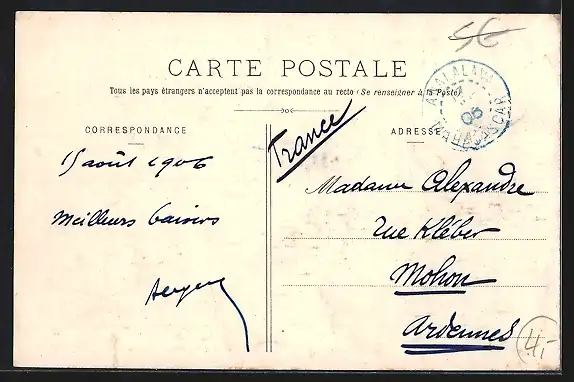 CARTE POSTALE
Tous les pays étrangers n'acceptent pas la correspondance au recto (Se renseigner à la Poste)
CORRESPONDANCE
15 août 1906
Meilleurs baisers
France
ADRESSE
MADAGASCAR
06
Madame Alexandre
rue Kléber
Mohon
Ardennes
4,-